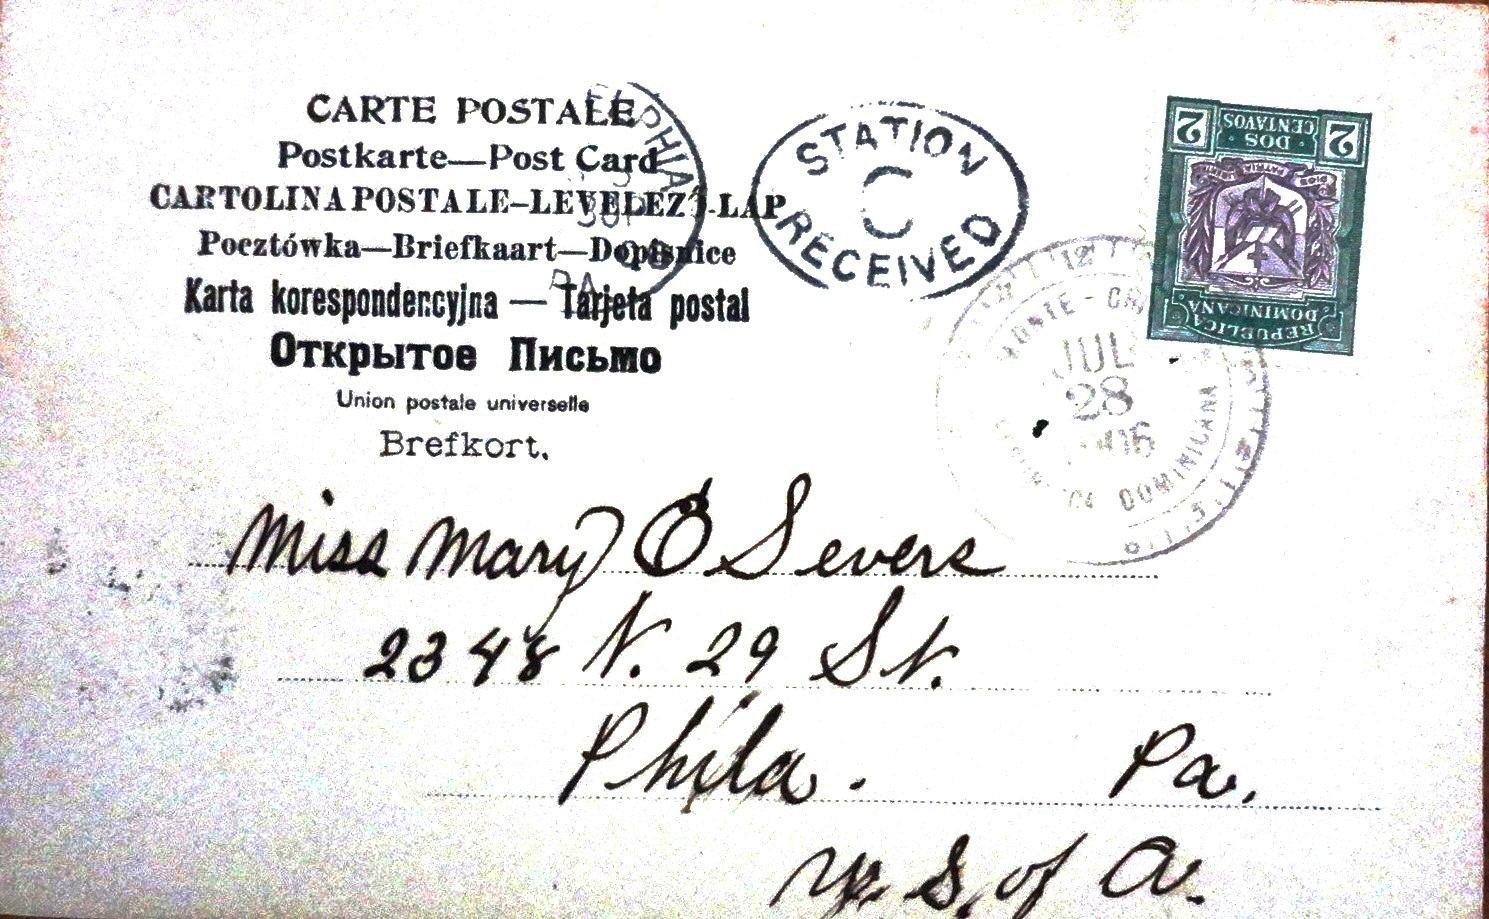 CARTE POSTALE
Postkarte—Post Card
CARTOLINA POSTALE–LEVELEZŐ-LAP
Pocztówka—Briefkaart—Dopisnice
Karta korespondencyjna — Tarjeta postal
Открытое Письмо
Union postale universelle
Brefkort.
STATION
C
RECEIVED
JUL
28
DOMINICANA
2 2
DOS
CENTAVOS
DIOS PATRIA
REPUBLICA
DOMINICANA
Miss Mary E Severs
2348 N. 29 St.
Phila. Pa.
U. S. of A.